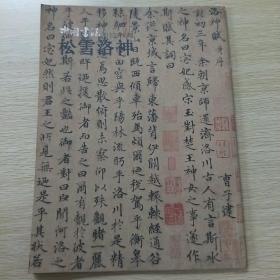 洛神賦 并序
曹子建
初三年余朝京師還濟洛川古人有言斯水
之神名曰宓妃感宋玉對楚王神女之事遂作
斯賦其詞曰
余從京域言歸東藩背伊闕越轘轅經通谷
陵景山日既西傾車殆馬煩爾迺稅駕乎蘅皋
田容與乎陽林流眄乎洛川於是精
焉思散俯則未察仰以殊觀睹一麗
畔迺援御者而告之曰爾有
彼何人斯若此之艷也御者對曰臣聞河洛之
神名曰宓妃然則君王之所見無迺是乎其狀若
中国书法
松雪洛神